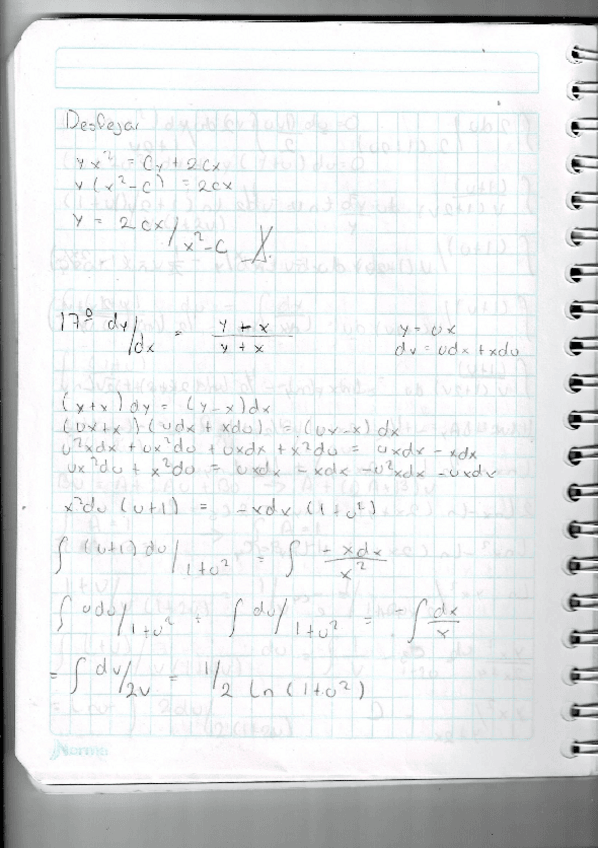 Despejar
yx² = Cy + 2cx
y (x² - C) = 2cx
y = 2cx / x² - C
17º dy/dx = y - x / y + x    y = ux
dy = udx + xdu
(y+x) dy = (y-x) dx
(ux+x) (udx + xdu) = (ux-x) dx
u²xdx + ux²du + uxdx + x²du = uxdx - xdx
ux²du + x²du = uxdx - xdx - u²xdx - uxdx
x²du (u+1) = -xdx (1+u²)
∫ (u+1) du / 1+u² = ∫ -xdx / x²
∫ udu / 1+u² + ∫ du / 1+u² = - ∫ dx / x
= ∫ dv / 2v = 1/2 ln (1+u²)
Norma